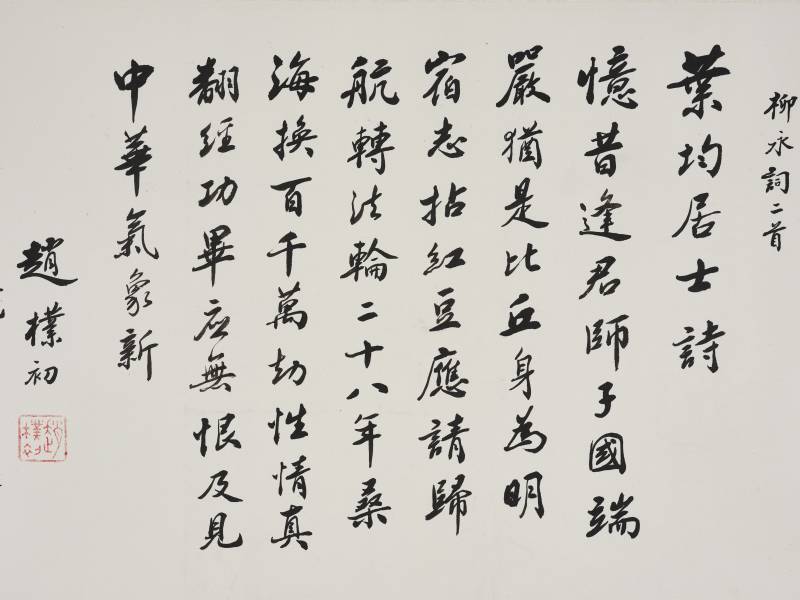 柳永詞二首
葉均居士詩
憶昔逢君師子國端
嚴猶是比丘身為明
宿志拈紅豆應請歸
航轉法輪二十八年桑
海換百千萬劫性情真
翻經功畢应無恨及見
中華氣象新
趙樸初
趙樸初